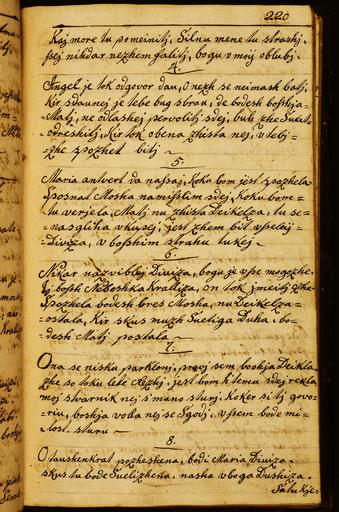 220
Kaj more tu pomeinitj, Silnu mene tu strashj,
sej nikdar nezhem falitj, bogu v moij oblubj.
4.
Angel je tok odgovor dau, O nezh se neimash batj,
kir sdaunej je tebe bug sbrau, de bodesh boshja
Matj, ne odlashej pervolitj sdej, bule zhe Sueit-
odreshitj, Kir tok obena zhista nej, v tebj-
zhe spozhet bitj
5.
Maria antvert da nasaj, koku bom jest spozhela
Sposnat Mosha na mislim sdej, Koku bom=
tu verjela, Matj nu zhista Deikelza, tu se=
na sgliha vkupej, jest zhem bit vselej-
Diviza, v boshim strahu tukej
6.
Nikar na zviblej Diviza, bogu je vse mogozhe,
tj bosh Neboshka Kraliza, on tok jmeitj zhe
Spozhela bodesh bres Mosha, nu Deikelza=
ostala, Kir skus muzh Suetiga Duha, bo=
desh Matj postala
7.
Ona se nisku parklonj, prov sem boshja Deikla
zhe so toku lete rezhj, jest bom k temu sdej rekla
moj stvarnik nej s'mano sturj, Koker si tj govo=
riu, boshja volla nej se sgodj, vsem bode mi=
lost sturu
8.
O taushenkrat pozheshena, bodi Maria Diviza
skus tu bode Sueilizhena, nasha vboga Dushiza.